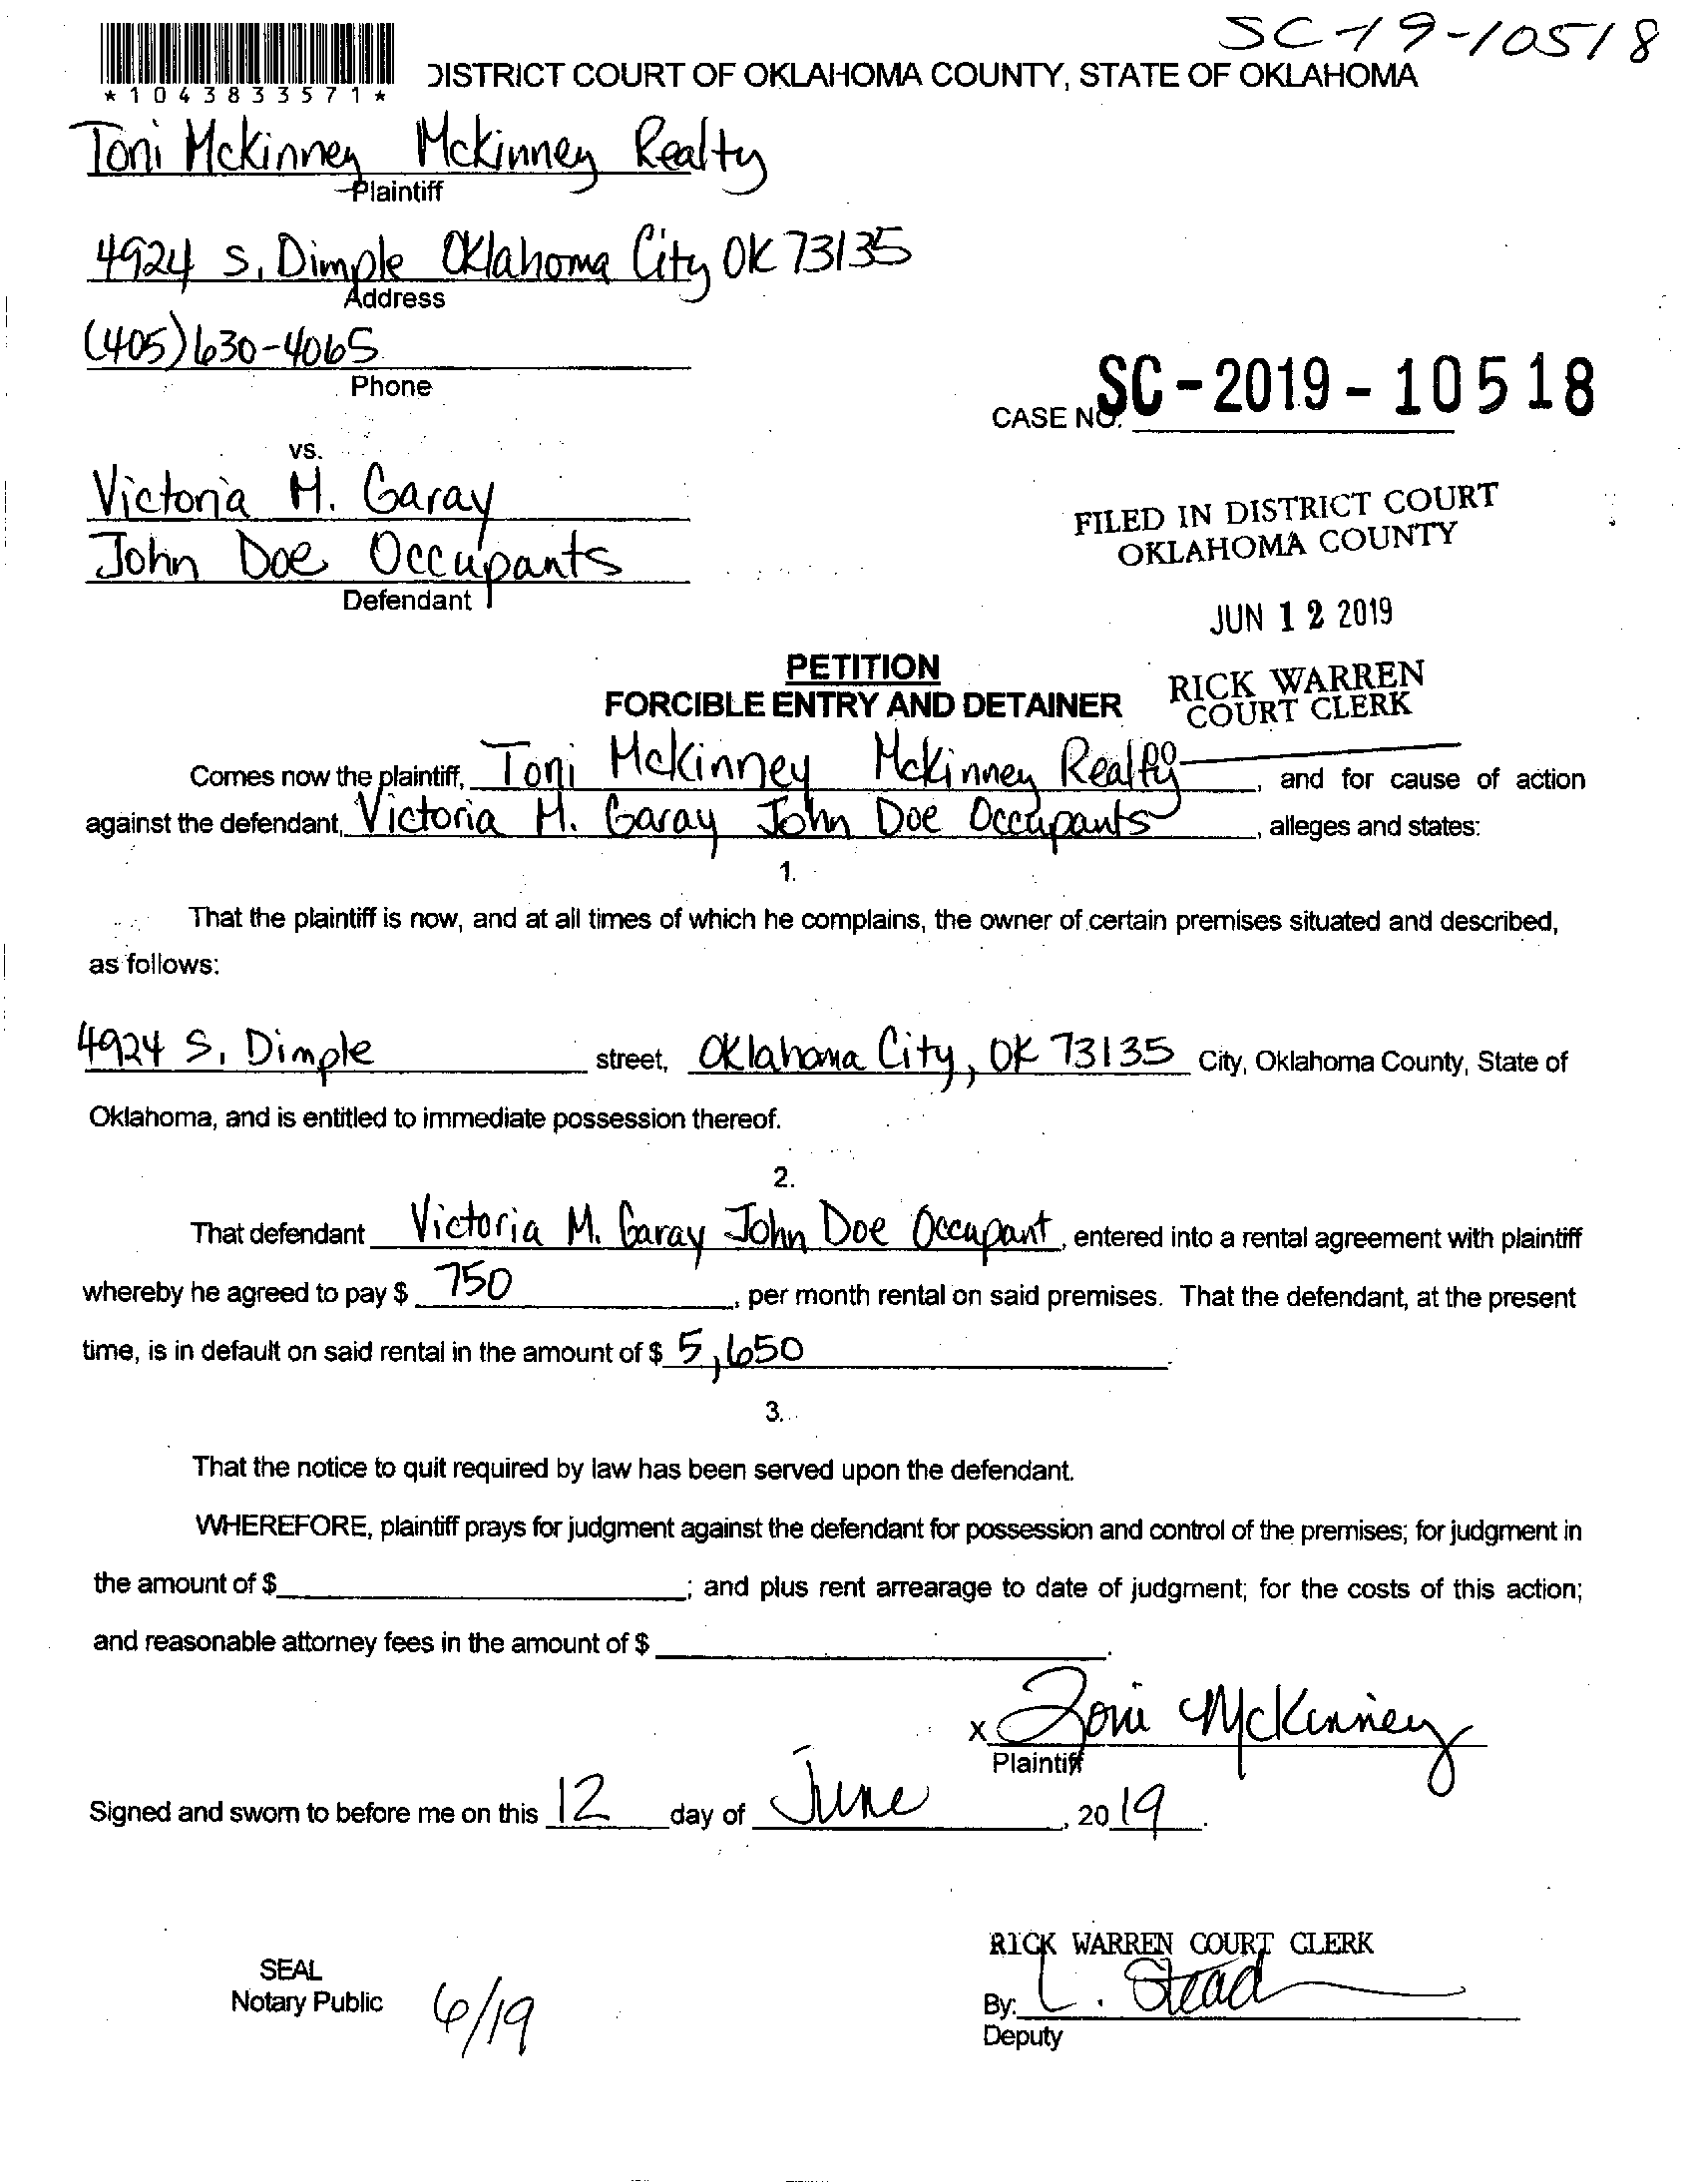 SC-19-10518
*1043833571*
DISTRICT COURT OF OKLAHOMA COUNTY, STATE OF OKLAHOMA
Toni McKinney McKinney Realty
Plaintiff
4924 S. Dimple Oklahoma City OK 73135
Address
(405)630-4065
Phone
CASE NO. SC-2019-10518
vs.
Victoria M. Garay
John Doe Occupants
Defendant
FILED IN DISTRICT COURT
OKLAHOMA COUNTY
JUN 12 2019
RICK WARREN
COURT CLERK
PETITION
FORCIBLE ENTRY AND DETAINER
Comes now the plaintiff, Toni McKinney McKinney Realty, and for cause of action
against the defendant, Victoria M. Garay John Doe Occupants, alleges and states:
1.
That the plaintiff is now, and at all times of which he complains, the owner of certain premises situated and described,
as follows:
4924 S. Dimple street, Oklahoma City, OK 73135 City, Oklahoma County, State of
Oklahoma, and is entitled to immediate possession thereof.
2.
That defendant Victoria M. Garay John Doe Occupant, entered into a rental agreement with plaintiff
whereby he agreed to pay $ 750, per month rental on said premises. That the defendant, at the present
time, is in default on said rental in the amount of $ 5,650.
3.
That the notice to quit required by law has been served upon the defendant.
WHEREFORE, plaintiff prays for judgment against the defendant for possession and control of the premises; for judgment in
the amount of $ ; and plus rent arrearage to date of judgment; for the costs of this action;
and reasonable attorney fees in the amount of $ .
X Toni McKinney
Plaintiff
Signed and sworn to before me on this 12 day of June, 2019.
RICK WARREN COURT CLERK
SEAL
Notary Public 6/19
By: L. Stead
Deputy